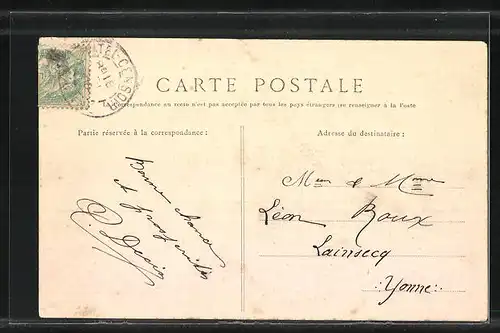 CARTE POSTALE
La correspondance au recto n'est pas acceptée par tous les pays étrangers (se renseigner à la Poste
Partie réservée à la correspondance :
Adresse du destinataire :
Bonne chance
et prospérités
Mme
Léon Roux
Lainsecq
Yonne